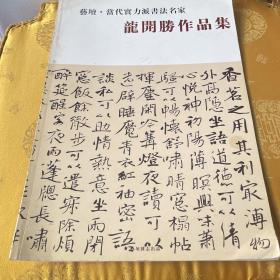 藝壇·當代實力派書法名家
龍開勝作品集
香茗之用其利最溥物
外高隱坐語道德可以清
心悅神初陽薄暝興味蕭
騷可以暢懷舒嘯晴窗榻帖
揮麈閑吟篝燈夜讀可以
遠辟睡魔青衣紅袖密語
談私可以助情熱意坐雨閉
窗飯餘散步可以遣寂除煩
醉筵醒客夜雨蓬窗長嘯